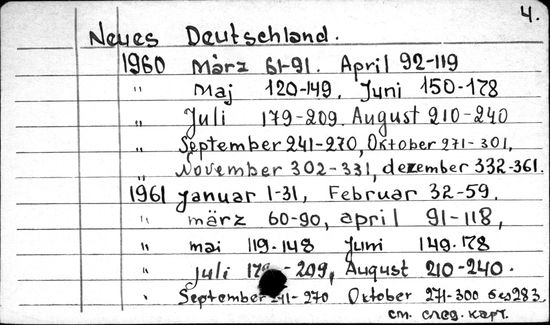 4.
Neues Deutschland.
1960 März 61-91. April 92-119
" Maj 120-149, Juni 150-178
" Juli 179-209. August 210-240
" September 241-270, Oktober 271-301,
" November 302-331, dezember 332-361.
1961 Januar 1-31, Februar 32-59.
" märz 60-90, april 91-118,
" mai 119-148 Juni 149-178
" juli 179-209, August 210-240.
" September 241-270 Oktober 271-300 без 283
см. след. карт.